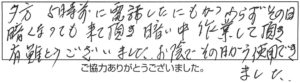 夕方5時前に電話したにもかかわらずその日
暗となっても来て頂き暗い中作業して頂き
有難とうございました、お陰でその日から使用でき
ました。
ご協力ありがとうございました。